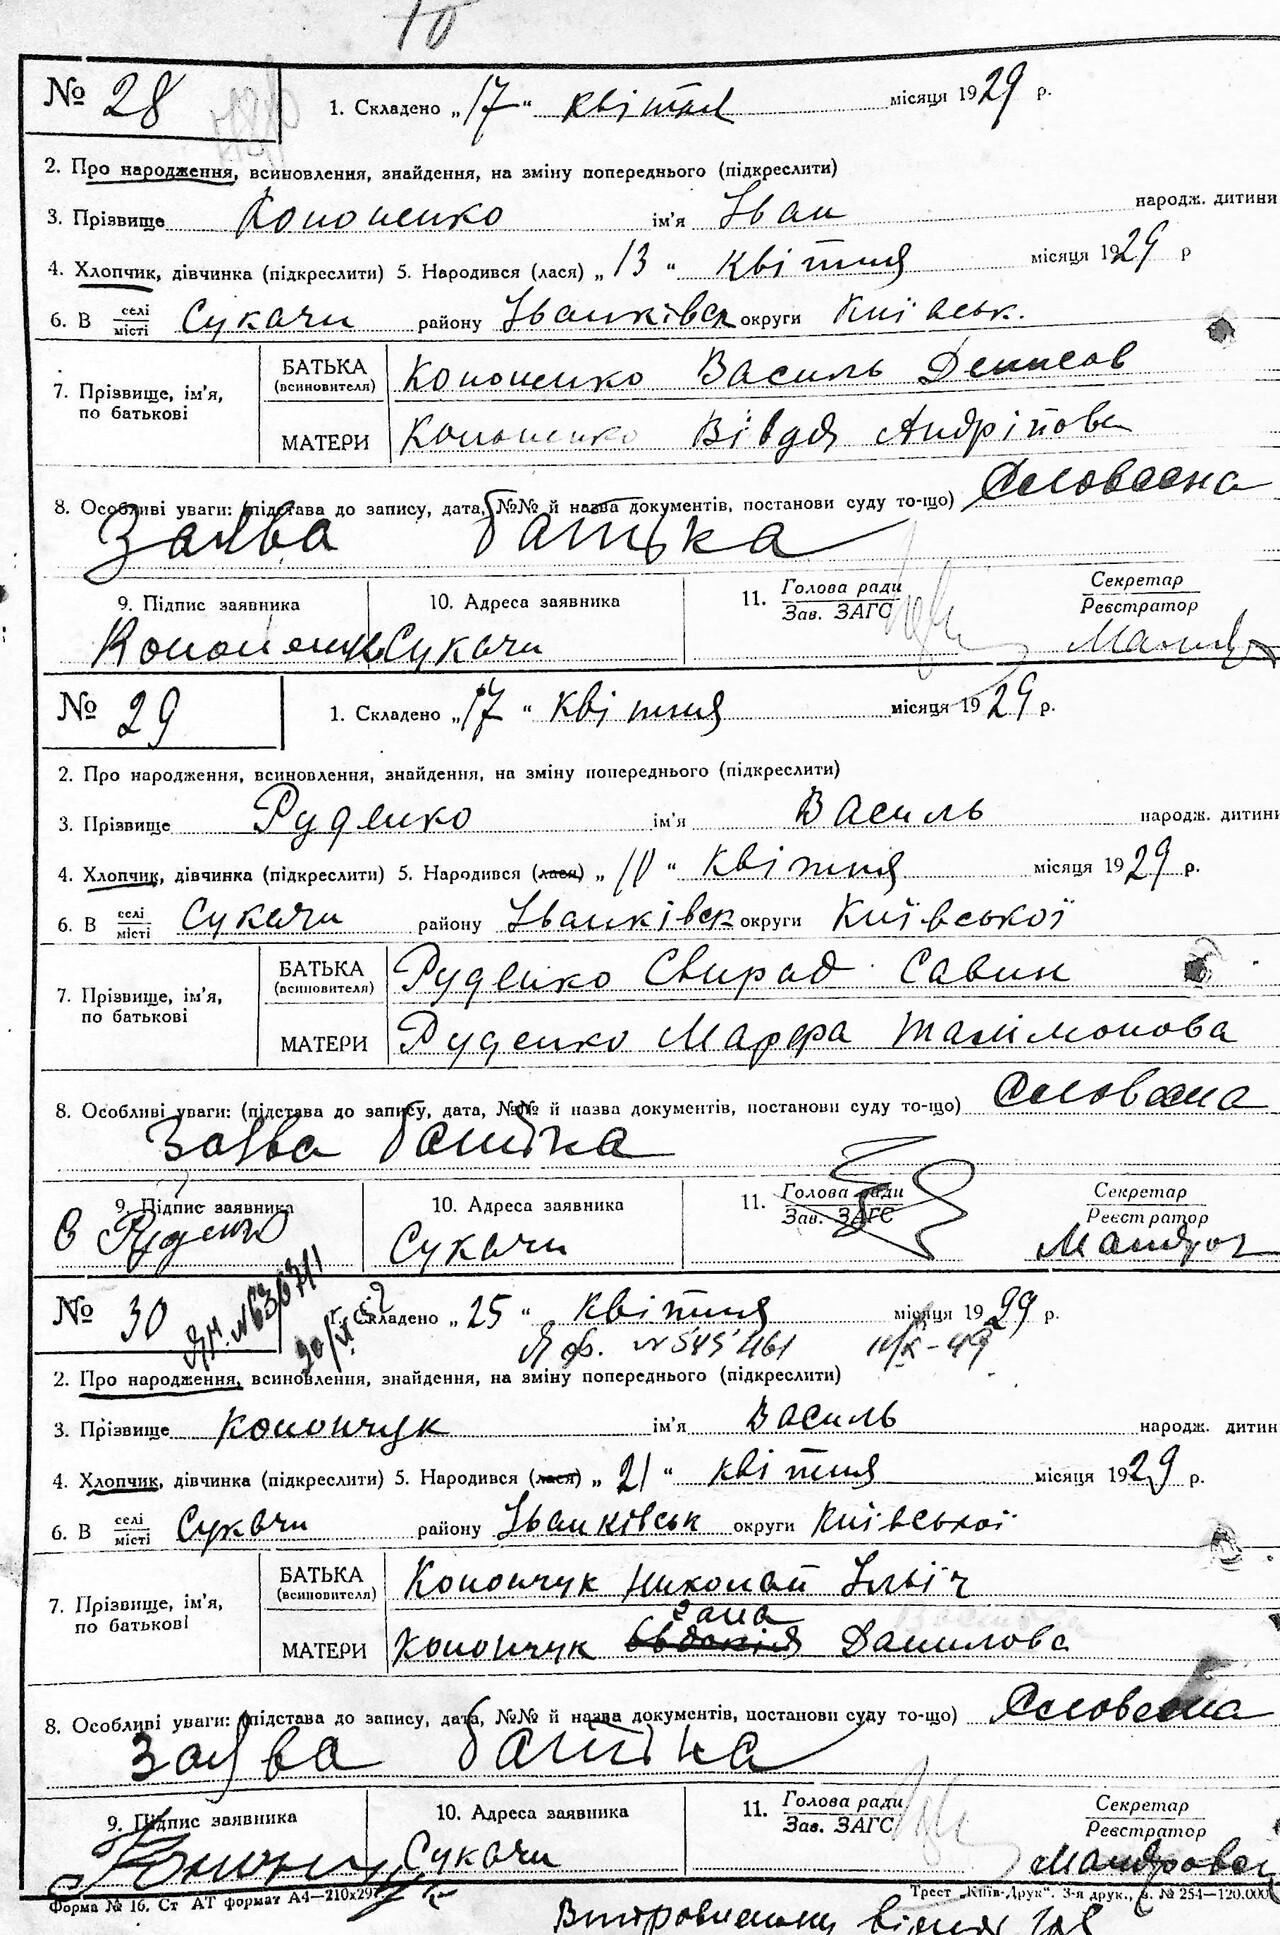 № 28 1. Складено „17“ квітня місяця 1929 р.
2. Про народження, всиновлення, знайдення, на зміну попереднього (підкреслити)
3. Прізвище Кононенко ім'я Іван народж. дитини
4. Хлопчик, дівчинка (підкреслити) 5. Народився (лася) „13“ квітня місяця 1929 р
6. В селі місті Сукачи району Іванківск округи Київськ.
7. Прізвище, ім'я, по батькові
БАТЬКА (всиновителя) Кононенко Василь Денисов
МАТЕРИ Кононенко Вівдя Андріївна
8. Особливі уваги: (підстава до запису, дата, №№ й назва документів, постанови суду то-що) Словесна
Заява батька
9. Підпис заявника 10. Адреса заявника 11. Голова ради Зав. ЗАГС Секретар Реєстратор
Кононенк Сукачи
№ 29 1. Складено „17“ квітня місяця 1929 р.
2. Про народження, всиновлення, знайдення, на зміну попереднього (підкреслити)
3. Прізвище Руденко ім'я Василь народж. дитини
4. Хлопчик, дівчинка (підкреслити) 5. Народився (лася) „10“ квітня місяця 1929 р.
6. В селі місті Сукачи району Іванківск округи Київської
7. Прізвище, ім'я, по батькові
БАТЬКА (всиновителя) Руденко Свирад Савин
МАТЕРИ Руденко Марфа Талімонова
8. Особливі уваги: (підстава до запису, дата, №№ й назва документів, постанови суду то-що) Словесна
Заява батька
9. Підпис заявника 10. Адреса заявника 11. Голова ради Зав. ЗАГС Секретар Реєстратор
С Руденко Сукачи
№ 30 1. Складено „25“ квітня місяця 1929 р.
№ 545461
2. Про народження, всиновлення, знайдення, на зміну попереднього (підкреслити)
3. Прізвище Конончук ім'я Василь народж. дитин
4. Хлопчик, дівчинка (підкреслити) 5. Народився (лася) „21“ квітня місяця 1929 р.
6. В селі місті Сукачи району Іванківськ округи Київської
7. Прізвище, ім'я, по батькові
БАТЬКА (всиновителя) Конончук Николай Ільіч
МАТЕРИ Конончук Данилова
8. Особливі уваги: (підстава до запису, дата, №№ й назва документів, постанови суду то-що) Словесна
Заява батька
9. Підпис заявника 10. Адреса заявника 11. Голова ради Зав. ЗАГС Секретар Реєстратор
Сукачи
Форма № 16. Ст АТ формат А4—210х297 Трест „Київ-Друк“. 3-я друк., з. № 254—120.000